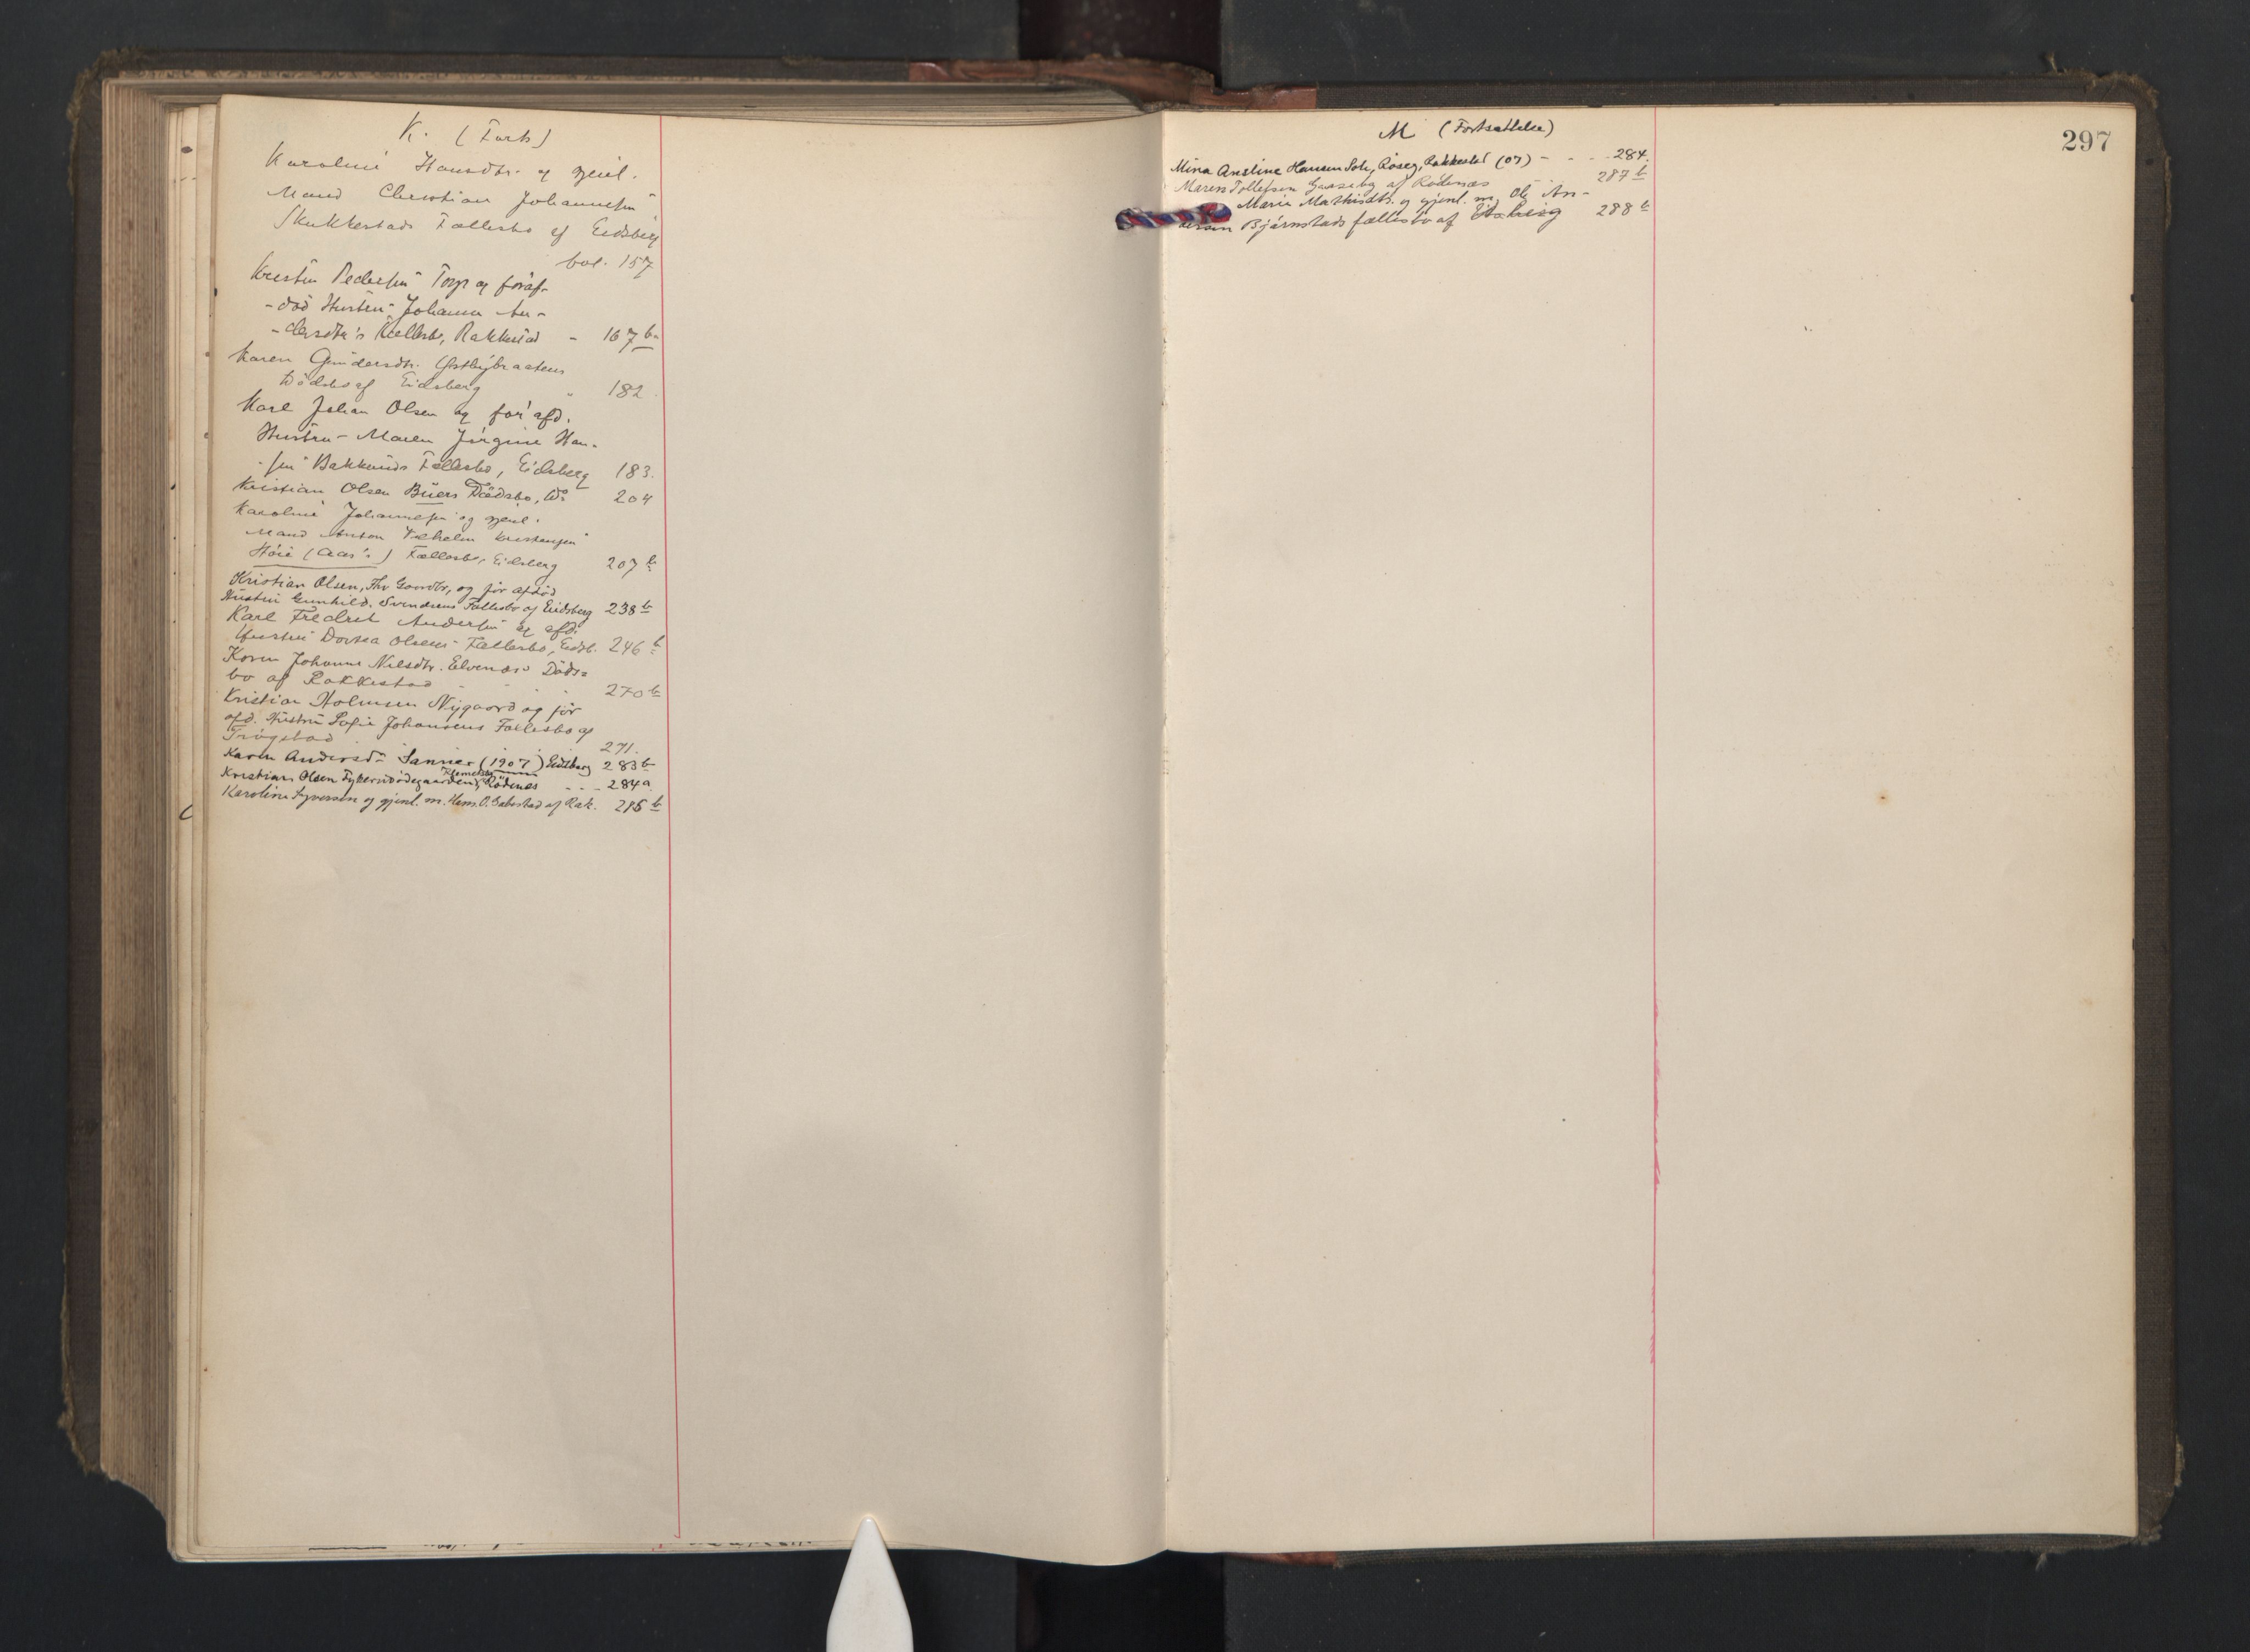 K. (Forts)
Karoline Hansdtr. og gjenl.
Mand Christian Johannesen
Skukkestads Fællesbo af Eidsberg
fol. 157
Kristen Pedersen Torp og foraf-
-død Hustru Johanne An-
-dersdtr's Fællesbo, Rakkestad - 167 b.
Karen Gundersdtr. Østbybraatens
Dödsbo af Eidsberg " 182.
Karl Johan Olsen og forafd.
Hustru - Maren Jørgine Han-
-sen Bakkeunds Fællesbo, Eidsberg 183.
Kristian Olsen Buers Dødsbo, do 204
Karoline Johannesen og gjenl.
Mand Anton Vilhelm Kristensen
Høie (Aas's) Fællesbo, Eidsberg 207 b
Kristian Olsen, Thv Gaardbr, og før afdød
Hustru Gunhild Svendsens Fællesbo af Eidsberg 238 b
Karl Fredrik Andersen og afd.
Hustru Dorthea Olsens Fællesbo, Eidsb. 246 b
Karen Johanne Nilsdtr. Elvenæs Döds=
bo af Rakkestad 270 b
Kristian Holmsen Nygaard og før
afd. Hustru Sofie Johansens Fællesbo af
Trøgstad 271.
Karen Andersd. Sanner (1907) Eidsberg 283 b
Kristian Olsen Klemetsby, Rödenes - - - 284 a
Karoline Syversen og gjenl. m. Hans O. Sabostad af Rak. 286 b
M (Fortsættelse)
297
Mina Ansline Hansen Rakkestad (07) - - - - 284.
Maren Tollefsen Gaaseby af Rödenæs 287 b
Maria Mathisdtr. og gjenl. m. Ole An-
dersen Bjørnstads fællesbo af Eidsberg 288 b